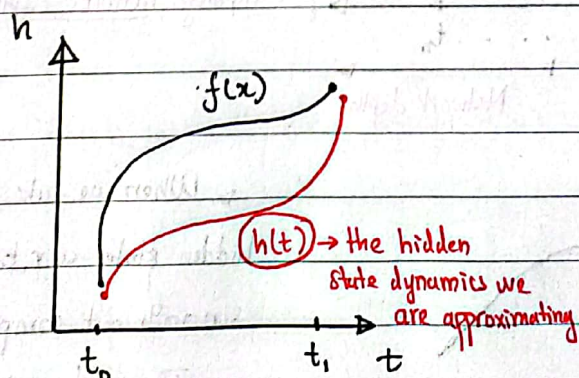 h
f(x)
h(t) → the hidden
state dynamics we
are approximating
t₀
t₁
t